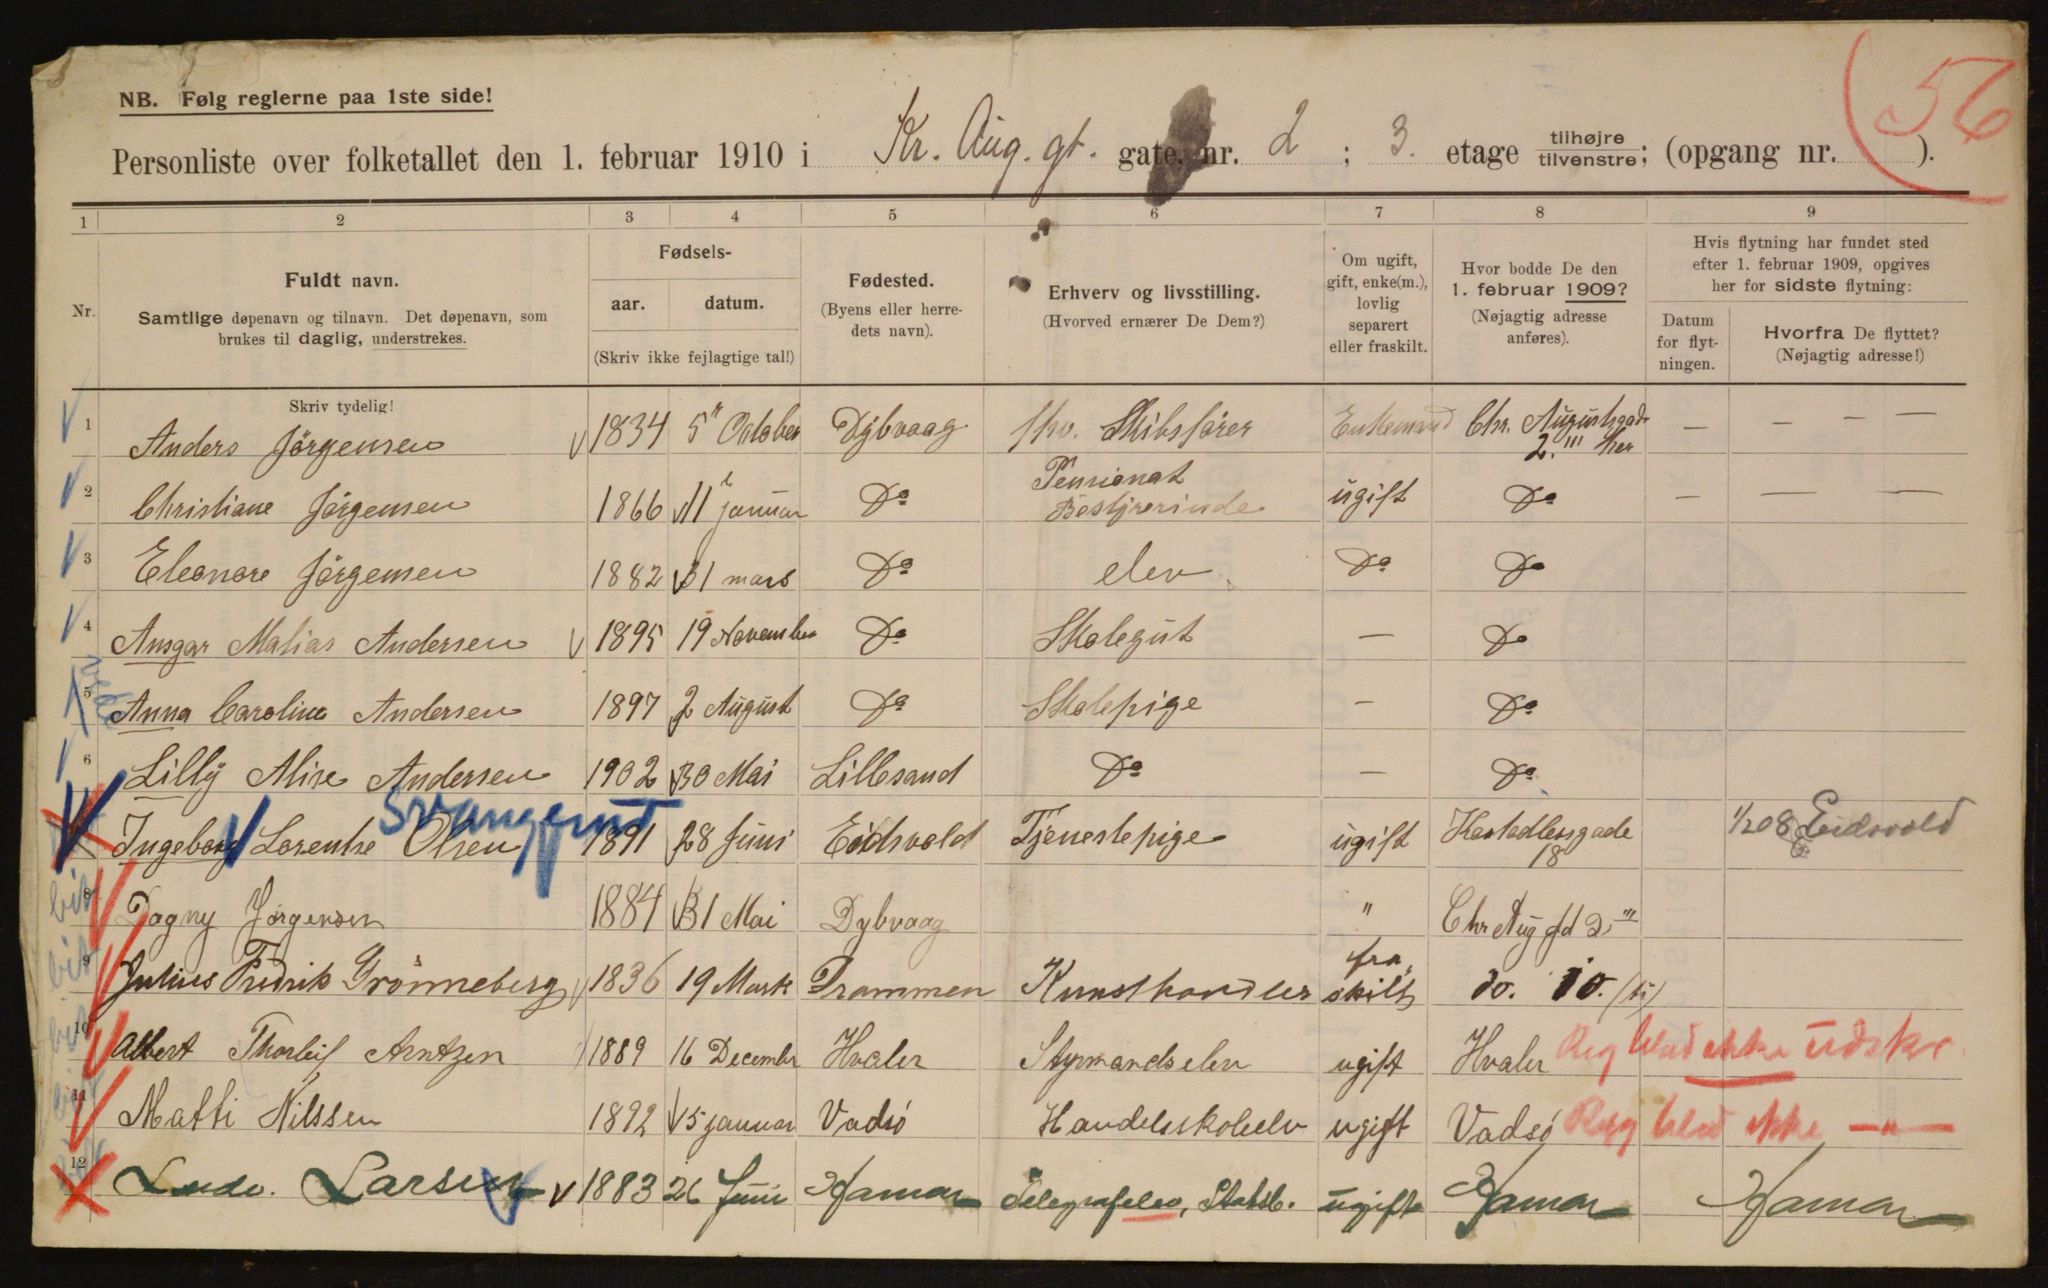 NB. Følg reglerne paa 1ste side!
56
Personliste over folketallet den 1. februar 1910 i Kr. Aug. gt. gate, nr. 2 ; 3. etage tilhøjre tilvenstre; (opgang nr. ).
1 2 3 4 5 6 7 8 9
Nr.
Fuldt navn.
Samtlige døpenavn og tilnavn. Det døpenavn, som
brukes til daglig, understrekes.
Fødsels-
aar. datum.
(Skriv ikke fejlagtige tal!)
Fødested.
(Byens eller herre-
dets navn).
Erhverv og livsstilling.
(Hvorved ernærer De Dem?)
Om ugift,
gift, enke(m.),
lovlig
separert
eller fraskilt.
Hvor bodde De den
1. februar 1909?
(Nøjagtig adresse
anføres).
Hvis flytning har fundet sted
efter 1. februar 1909, opgives
her for sidste flytning:
Datum
for flyt-
ningen.
Hvorfra De flyttet?
(Nøjagtig adresse!)
Skriv tydelig!
1 Anders Jörgensen 1834 5 October Dybvaag fhv. Skibsfører Enkemand Chr. Augustsgade 2.''' her — — — —
2 Christiane Jörgensen 1866 11 januar Do Pensionat Bestyrerinde ugift Do — — —
3 Eleonore Jörgensen 1882 31 mars Do elev Do Do
4 Ansgar Matias Andersen 1895 19 November Do Skolegut — Do
5 Anna Caroline Andersen 1897 2 August Do Skolepige — Do
6 Lilly Alise Andersen 1902 30 Mai Lillesand Do — Do
Ingeborg Lorentse Olsen 1891 28 Juni Eidsvold Tjenestepige ugift 18 Eidsvold
8 Dagny Jørgensen 1884 31 Mai Dybvaag " Chr Aug gd 2'''
9 Julius Fredrik Grönneberg 1836 19 Mars Drammen Kunsthandler fraskilt do. do.
10 Albert Thorleif Arntzen 1889 16 December Hvaler Styrmandselev ugift Hvaler Reg blad ikke udskr.
11 Matti Nilssen 1892 15 januar Vadsö Handelsskoleelv ugift Vadsö Reg blad ikke —"—
12 Ludv. Larsen 1883 26 Juni Hamar Telegrafelev, Statsb. ugift Hamar Hamar